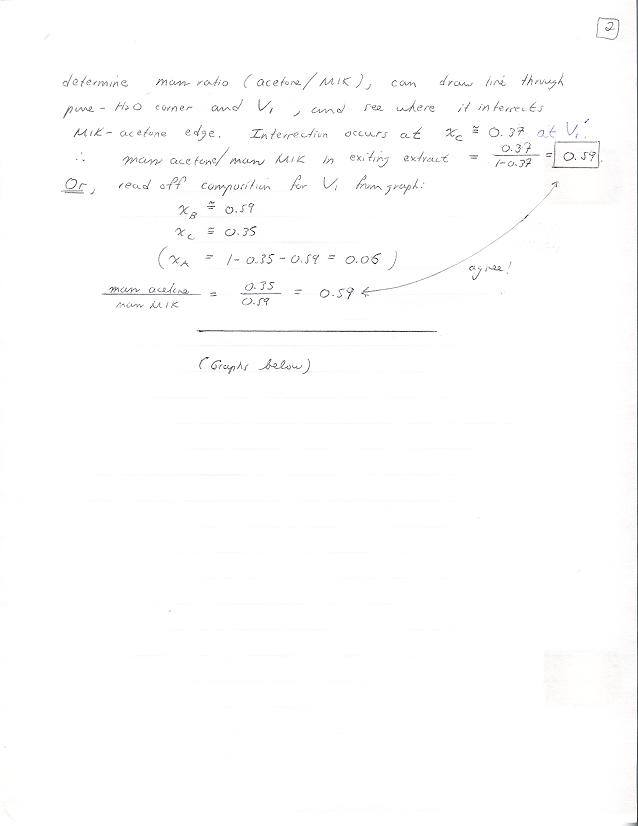 2
determine mass ratio (acetone/MIK), can draw line through
pure-H2O corner and V1, and see where it intersects
MIK-acetone edge. Intersection occurs at xC ≅ 0.37 at V1'.
∴ mass acetone/mass MIK in exiting extract = 0.37/1-0.37 = 0.59.
Or, read off composition for V1 from graph:
xB ≅ 0.59
xC ≅ 0.35
(xA = 1-0.35-0.59 = 0.06)
agree!
mass acetone/mass MIK = 0.35/0.59 = 0.59
(Graphs below)